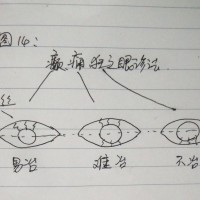 图14：
癫痫狂之眼诊法
丝
易治 难治 不治